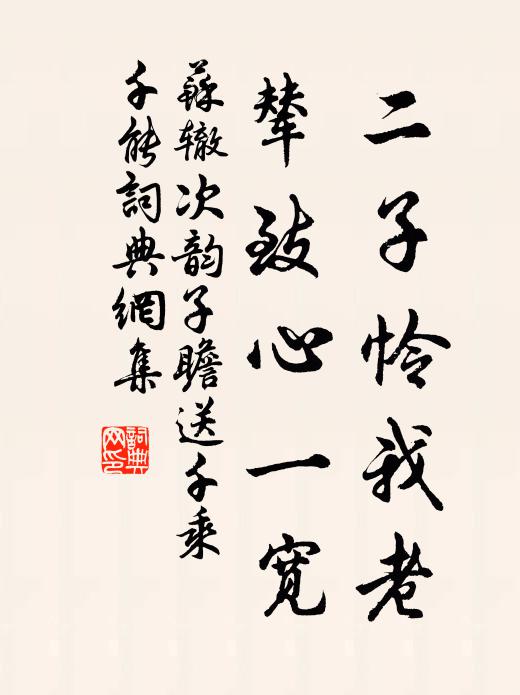 二子怜我老
辇致心一宽
蘇辙次韵子瞻送千乘
千能詞典網集
詞典
网印